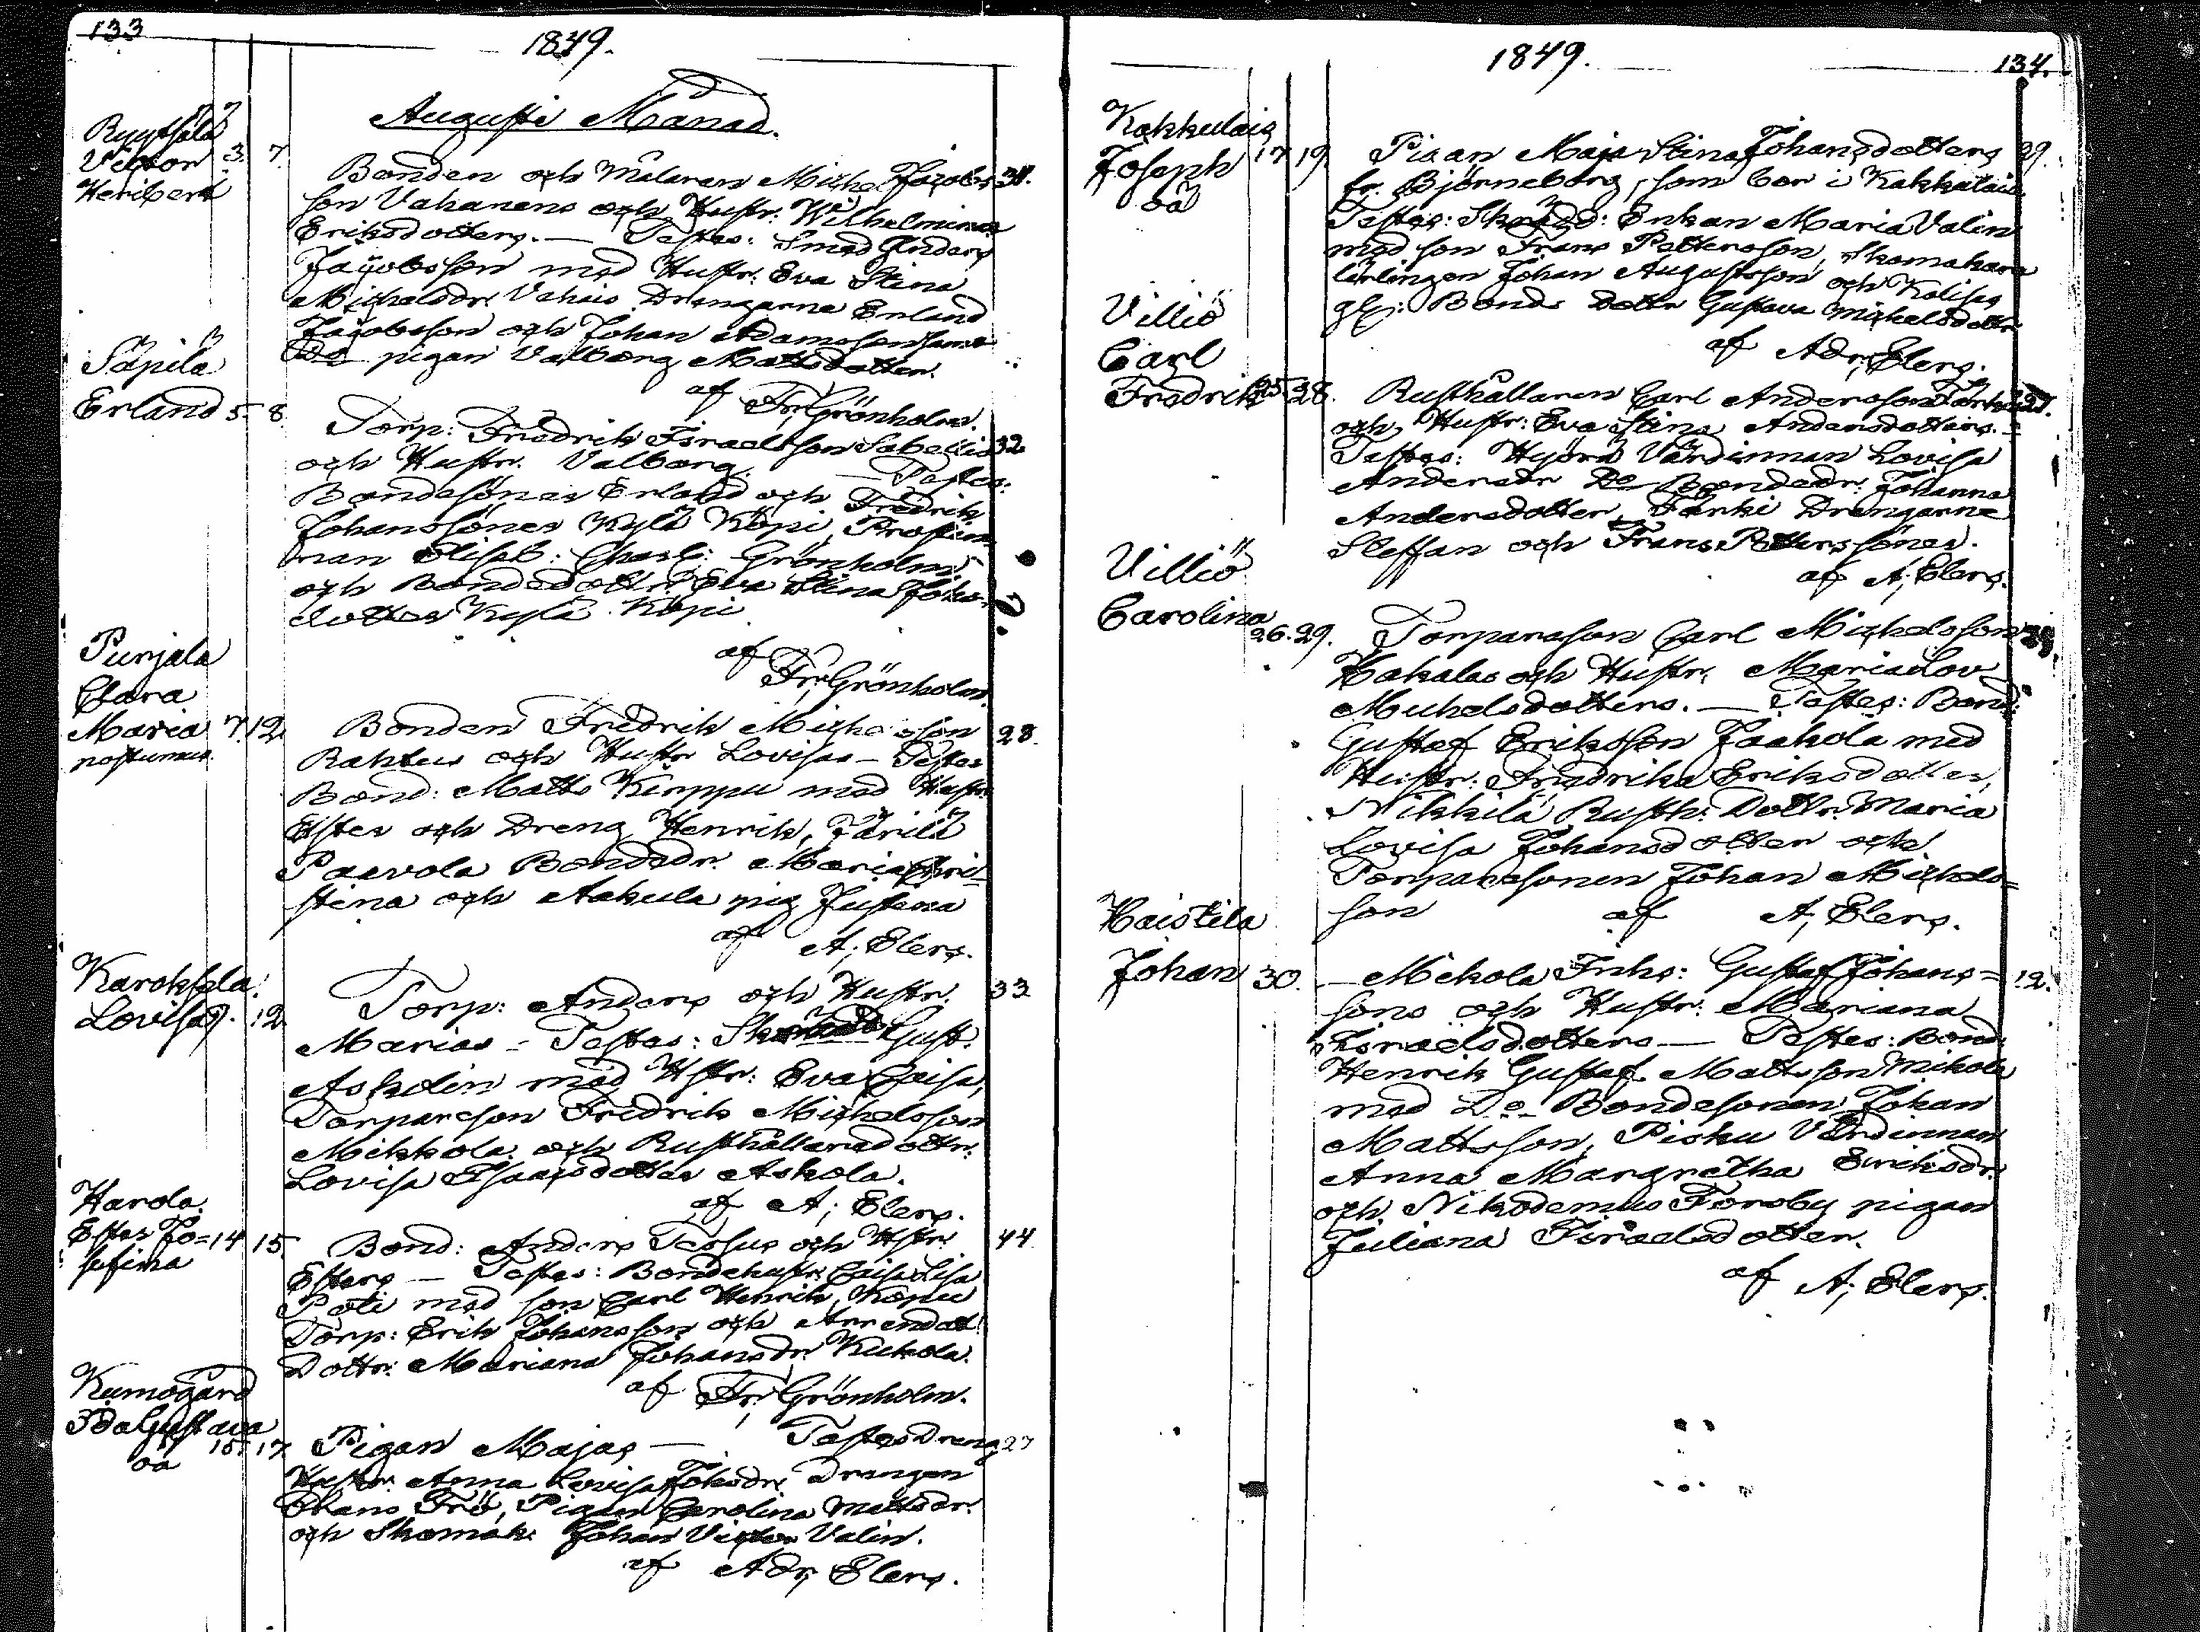 133
1849.
Augusti Månad.
Ruytsälä
Victor 3. 7.
Heribert
Bonden och Målaren Michel Jacobs 31.
son Vahanens och Hustr. Wilhelmina
Eriksdotters. — Testes: Smed Anders
Jacobsson med Hustr: Eva Stina
Michelsdr. Vahais Drengarne Erland
Jacobsson och Johan Adamsson samt
pigan Valborg Mattsdotter.
af Fr; Grönholm.
Säpilä
Erland 5. 8.
Torp: Fredrik Israelsson Sabellis 32
och Hustr. Valborg. — Testes:
Bondesöner Erland och Fredrik
Johanssöner Kylä Köpi, Prostin
nan Elisab: Charl: Grönholm
och Bondedottr. Eva Stina Johs
dotter Kylä Köpi
af
Fr; Grönholm.
Punjala
Clara
Maria 7. 12.
postumus.
Bonden Fredrik Michelsson 28.
Raktus och Hustr Lovisas — Testes
Bond: Matts Kirppu med Hustr.
Ester och Dreng Henrik, Järilä
Paavola Bondedr. Maria Chri-
stina och Aakula pig Justina
af A; Elers.
Karoksela.
Lovisa 9. 12.
Torp: Anders och Hustr. 33
Marias — Testes: Gust.
Askolin med Hstr: Eva Caisa,
Torpareson Fredrik Michelsson
Mikkola och Rusthållaredottr.
Lovisa Isaacsdotter Askola.
af A; Elers.
Harola.
Ester Jo= 14 15.
sefina
Bond: Anders Tassus och Hstr. 44.
Esters — Testes: Bondehustr. Caisa Lisa
Pati med son Carl Henrik, Kopu
Torp: Erik Johansson och Arrendat.
Dottr: Mariana Johansdr. Kukola.
af Fr; Grönholm.
Kumogård
Ida Gustava
oä 15. 17.
Pigan Majas — Testes Dreng 27
Hustr. Anna Lovisa Johsdr. Drengen
Frans Frö, Pigan Carolina Mattsdr.
och Skomak. Johan Victor Valin.
af Adr; Elers.
1849.
134.
Kakkulais
Joseph 17 19
oä
Pigan Maja Stina Johansdotters 29.
fr. Björneborg, som bor i Kakkulais
Testes: Enkan Maria Valin
med son Frans Pettersson, Skomakare
lärlingen Johan Augustsson och Kolisas
gl: Bonde Dottr Gustava Michelsdottr
af Adr; Elers.
Villiö
Carl
Fredrik 25. 28.
Rusthållaren Carl Andersson 27.
och Hustr: Eva Stina Andersdotters. =
Testes: Hyörä Värdinnan Lovisa
Andersdr Do Bondedr. Johanna
Andersdotter, Tärki Drengarne
Steffan och Frans Petterssöner.
af A; Elers.
Villiö
Carolina
26. 29.
Torpareson Carl Michelsson
Kakalas och Hustr: Maria Lov
Michelsdotters. — Testes: Bond:
Gustaf Eriksson Jaakola med
Hustr: Fredrika Eriksdotter,
Nikkilä Rusth: Dottr. Maria
Lovisa Johansdotter och
Torparesonen Johan Michels=
son af A; Elers.
Haistila
Johan 30.
— Mekola Inhs: Gustaf Johans= 12.
sons och Hustr: Mariana
Israelsdotters — Testes: Bond
Henrik Gustaf Mattsson Mikola
med Do Bondesonen Johan
Mattsson, Pisku Värdinnan
Anna Margretha Eriksdr.
och Nikodemus Forsby pigan
Juliana Israelsdotter.
af A; Elers.